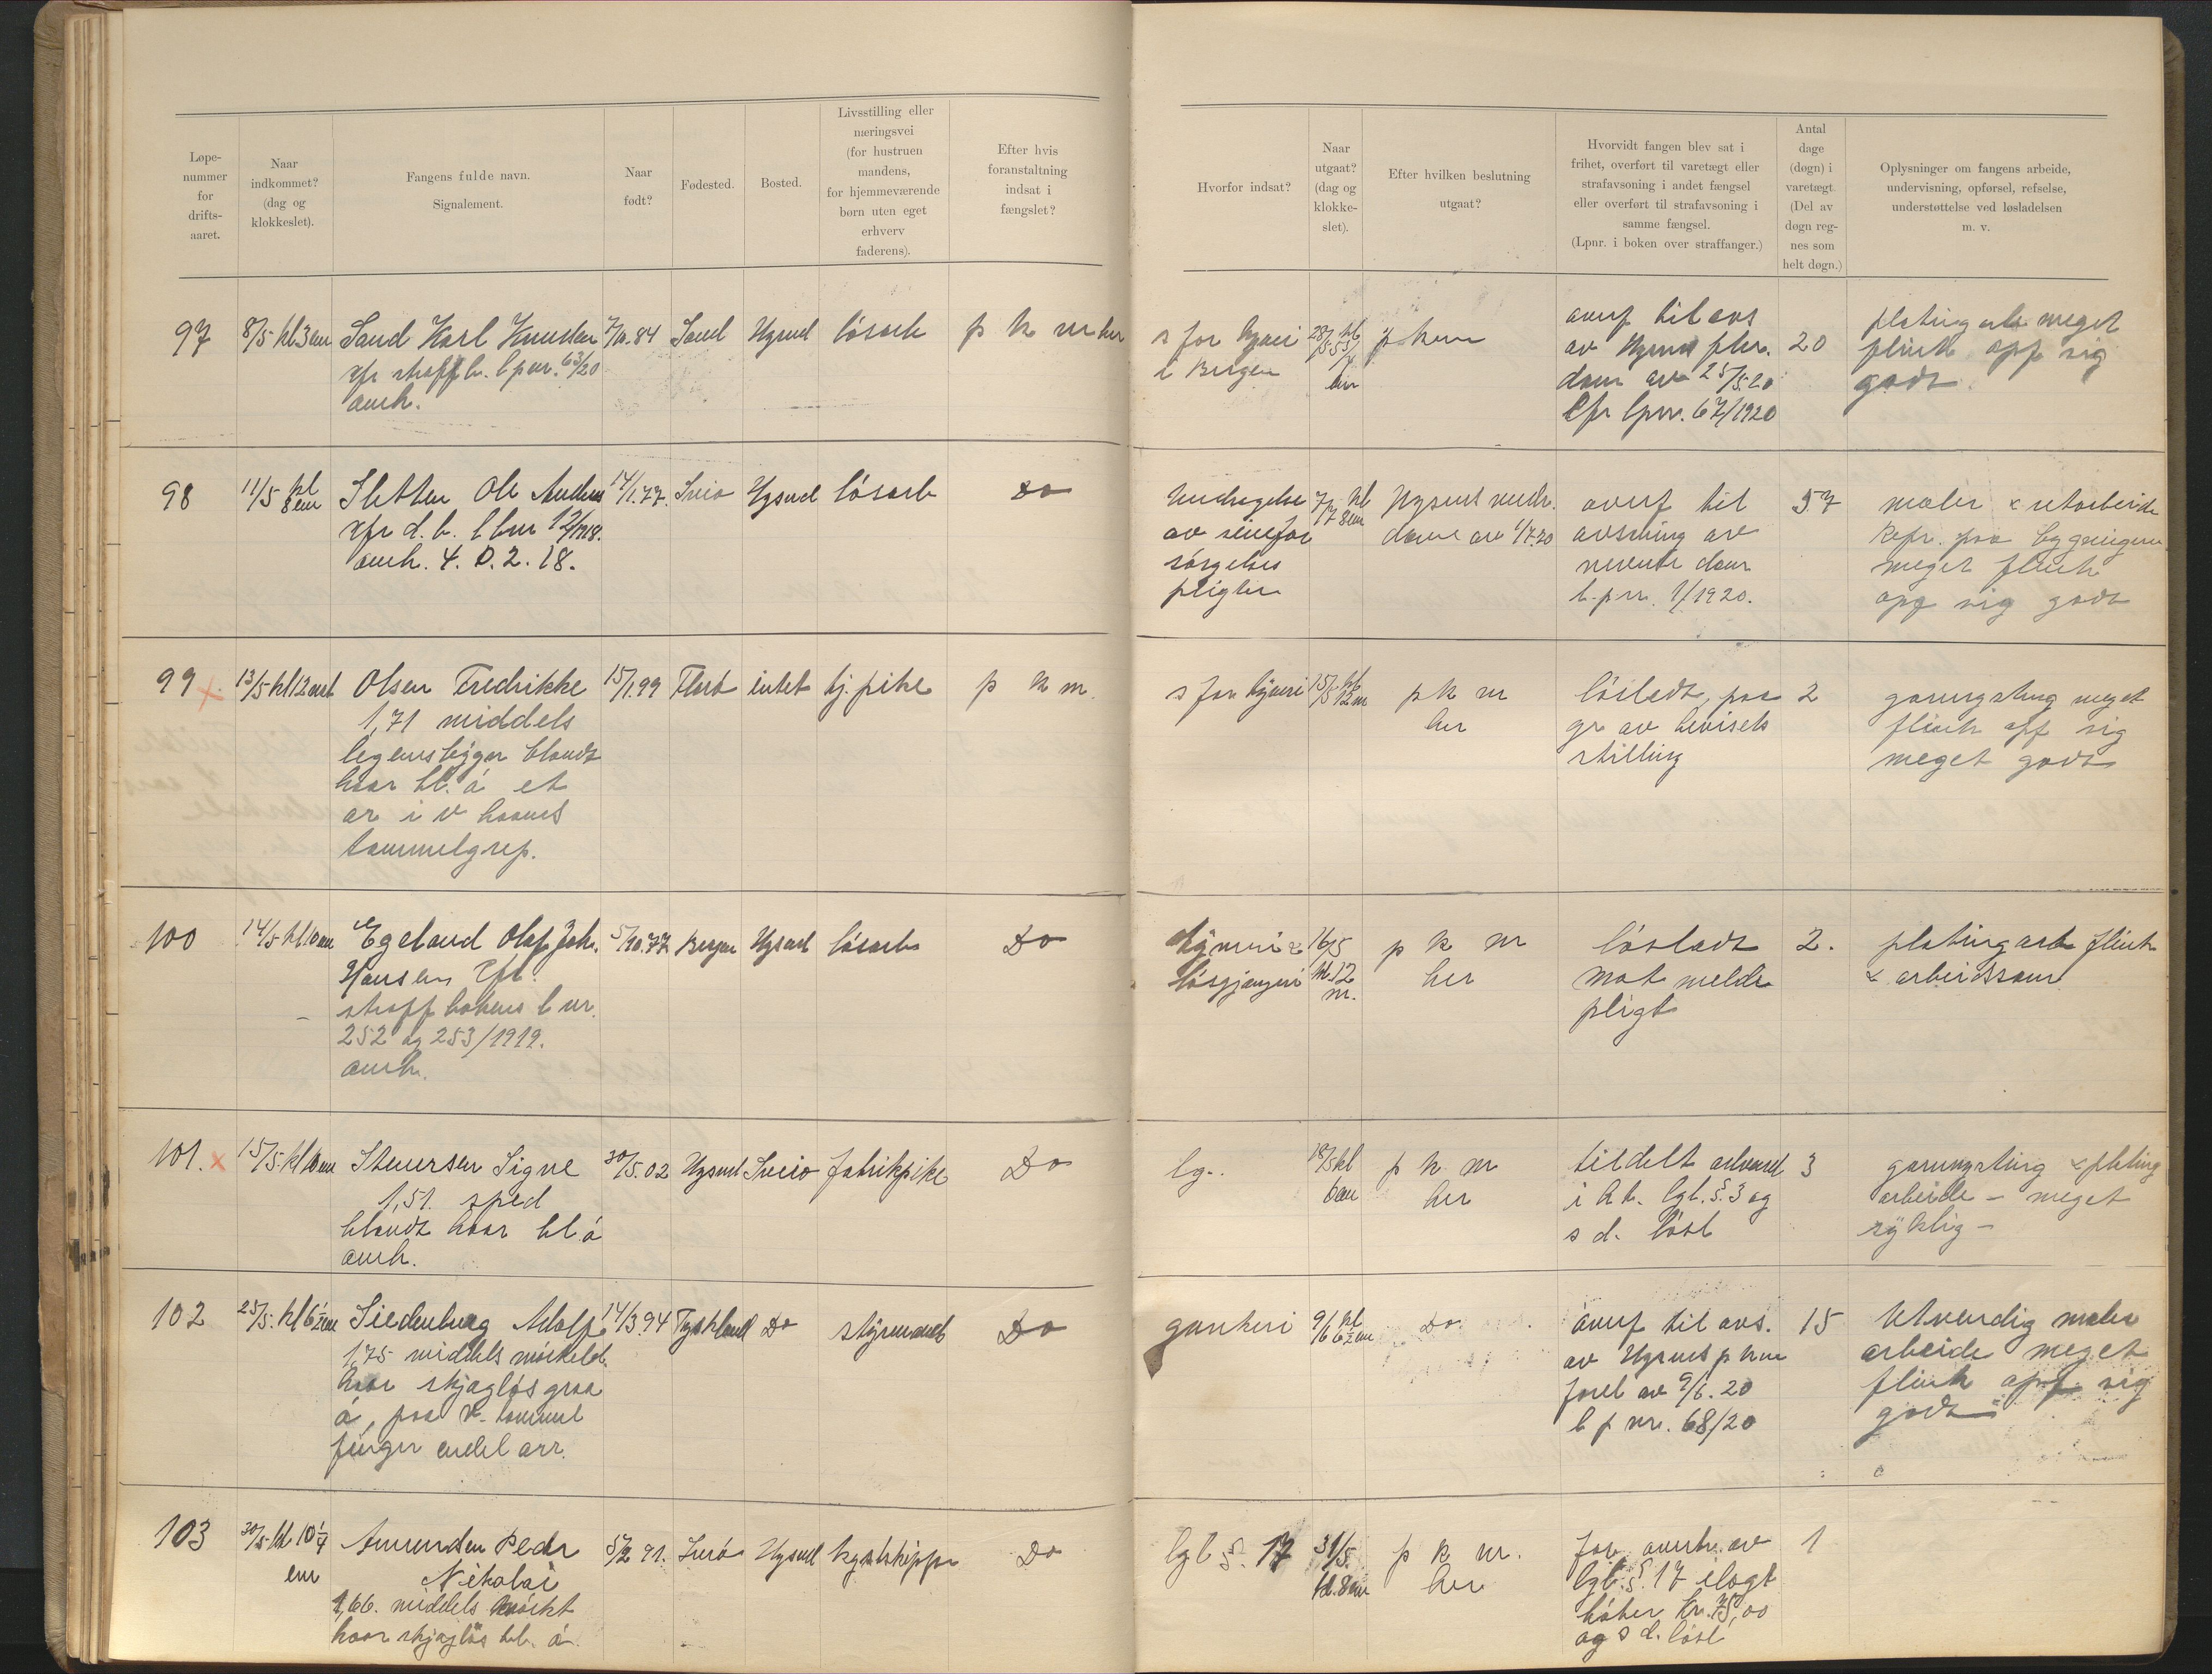 Løpe-
nummer
for
drifts-
aaret.
Naar
indkommet?
(dag og
klokkeslet).
Fangens fulde navn.
Signalement.
Naar
født?
Fødested.
Bosted.
Livsstilling eller
næringsvei
(for hustruen
mandens,
for hjemmeværende
børn uten eget
erhverv
faderens).
Efter hvis
foranstaltning
indsat i
fængslet?
Hvorfor indsat?
Naar
utgaat?
(dag og
klokke-
slet).
Efter hvilken beslutning
utgaat?
Hvorvidt fangen blev sat i
frihet, overført til varetægt eller
strafavsoning i andet fængsel
eller overført til strafavsoning i
samme fængsel.
(Lpnr. i boken over straffanger.)
Antal
dage
(døgn) i
varetægt.
(Del av
døgn reg-
nes som
helt døgn.)
Oplysninger om fangens arbeide,
undervisning, opførsel, refselse,
understøttelse ved løsladelsen
m. v.
97
8/5 kl 3 em
Sand Karl Knutsen
straffb. lpnr. 63/20
anh.
7/10.84
Sand
Hgsund
løsarb
p k m her
s for tyveri
i Bergen
p k m
overf til avs
av Hgsund
dom av 25/5.20
Cfr lpnr. 67/1920
20
meget
flink opf sig
godt
98
11/5 kl
8 em
Sletten Ole Anders
cfr d. b. l bnr 12/1918.
anh. 4. D. 2. 18.
14/1.77.
Sveio
Hgsund
løsarb
Do
Unddragelse
av sine for
sørgelses
pligter
7/7 kl 8 em
Hgsund medr.
dom av 1/7.20
overf til
avsoning av
nevnte dom
l. p nr. 1/1920.
57
maler & utarbeide
Kefr. paa bygningen
meget flink
opf sig godt
99
13/5 kl 12 nat
Olsen Fredrikke
1,71 middels
legemsbygn blondt
haar bl. ø et
ar i v haands
tommelgrep.
15/1.99
Florø
intet
tj. pike
p k m.
s for tyveri
15/5 kl 12 m
p k m
her
løsladt, paa
gr av bevisets
stilling
2
garnnøsting meget
flink opf sig
meget godt
100
14/5 kl 10 em
Egeland Olaf Joh.
Hansen Cfr.
straffbokens l nr.
252 og 253/1919.
anh.
5/10.77
Bergen
Hgsund
løsarb
Do
tyveri &
løsgjængeri
16/5
kl. 12
m.
p k m
her
løsladt
mot melde
pligt
2.
plating arb flink
& arbeidssom
101.
15/5 kl 10 em
Signe
1,51. sped
blondt haar bl ø
anh.
30/5.02
Hgsund
Sveio
fabrikpike
Do
lg..
18/5 kl
6 em
p k m
her
tildelt advarsel
i h. h. lgl. §. 3 og
s d. løsl
3
garnnøsting & plating
arbeide – meget
syklig –
102
25/5. kl 6½ em
Siedenburg Adolf
1,75 middels mørkebl.
haar skjægløs graa
ø, paa v. tommel
finger endel arr.
14/3.94
Tyskland
Do
styrmand
Do
9/6 kl 6½ em
Do
overf til avs.
av Hgsunds p kms
forel av 9/6. 20
l p nr. 68/20
15
Utvendig maler
arbeide meget
flink opf sig
godt
103
30/5 kl 10¼
em
Amundsen Peder
Nikolai
1,66. middels mørkt
haar skjægløs bl. ø
5/2 91.
Hgsund
kystskipper
Do
lgl §. 17
31/5.
kl. 8 em
p k m.
her
for overtr. av
lgl. §. 17 ilagt
bøter kr. 75,00
og s d. løsl
1